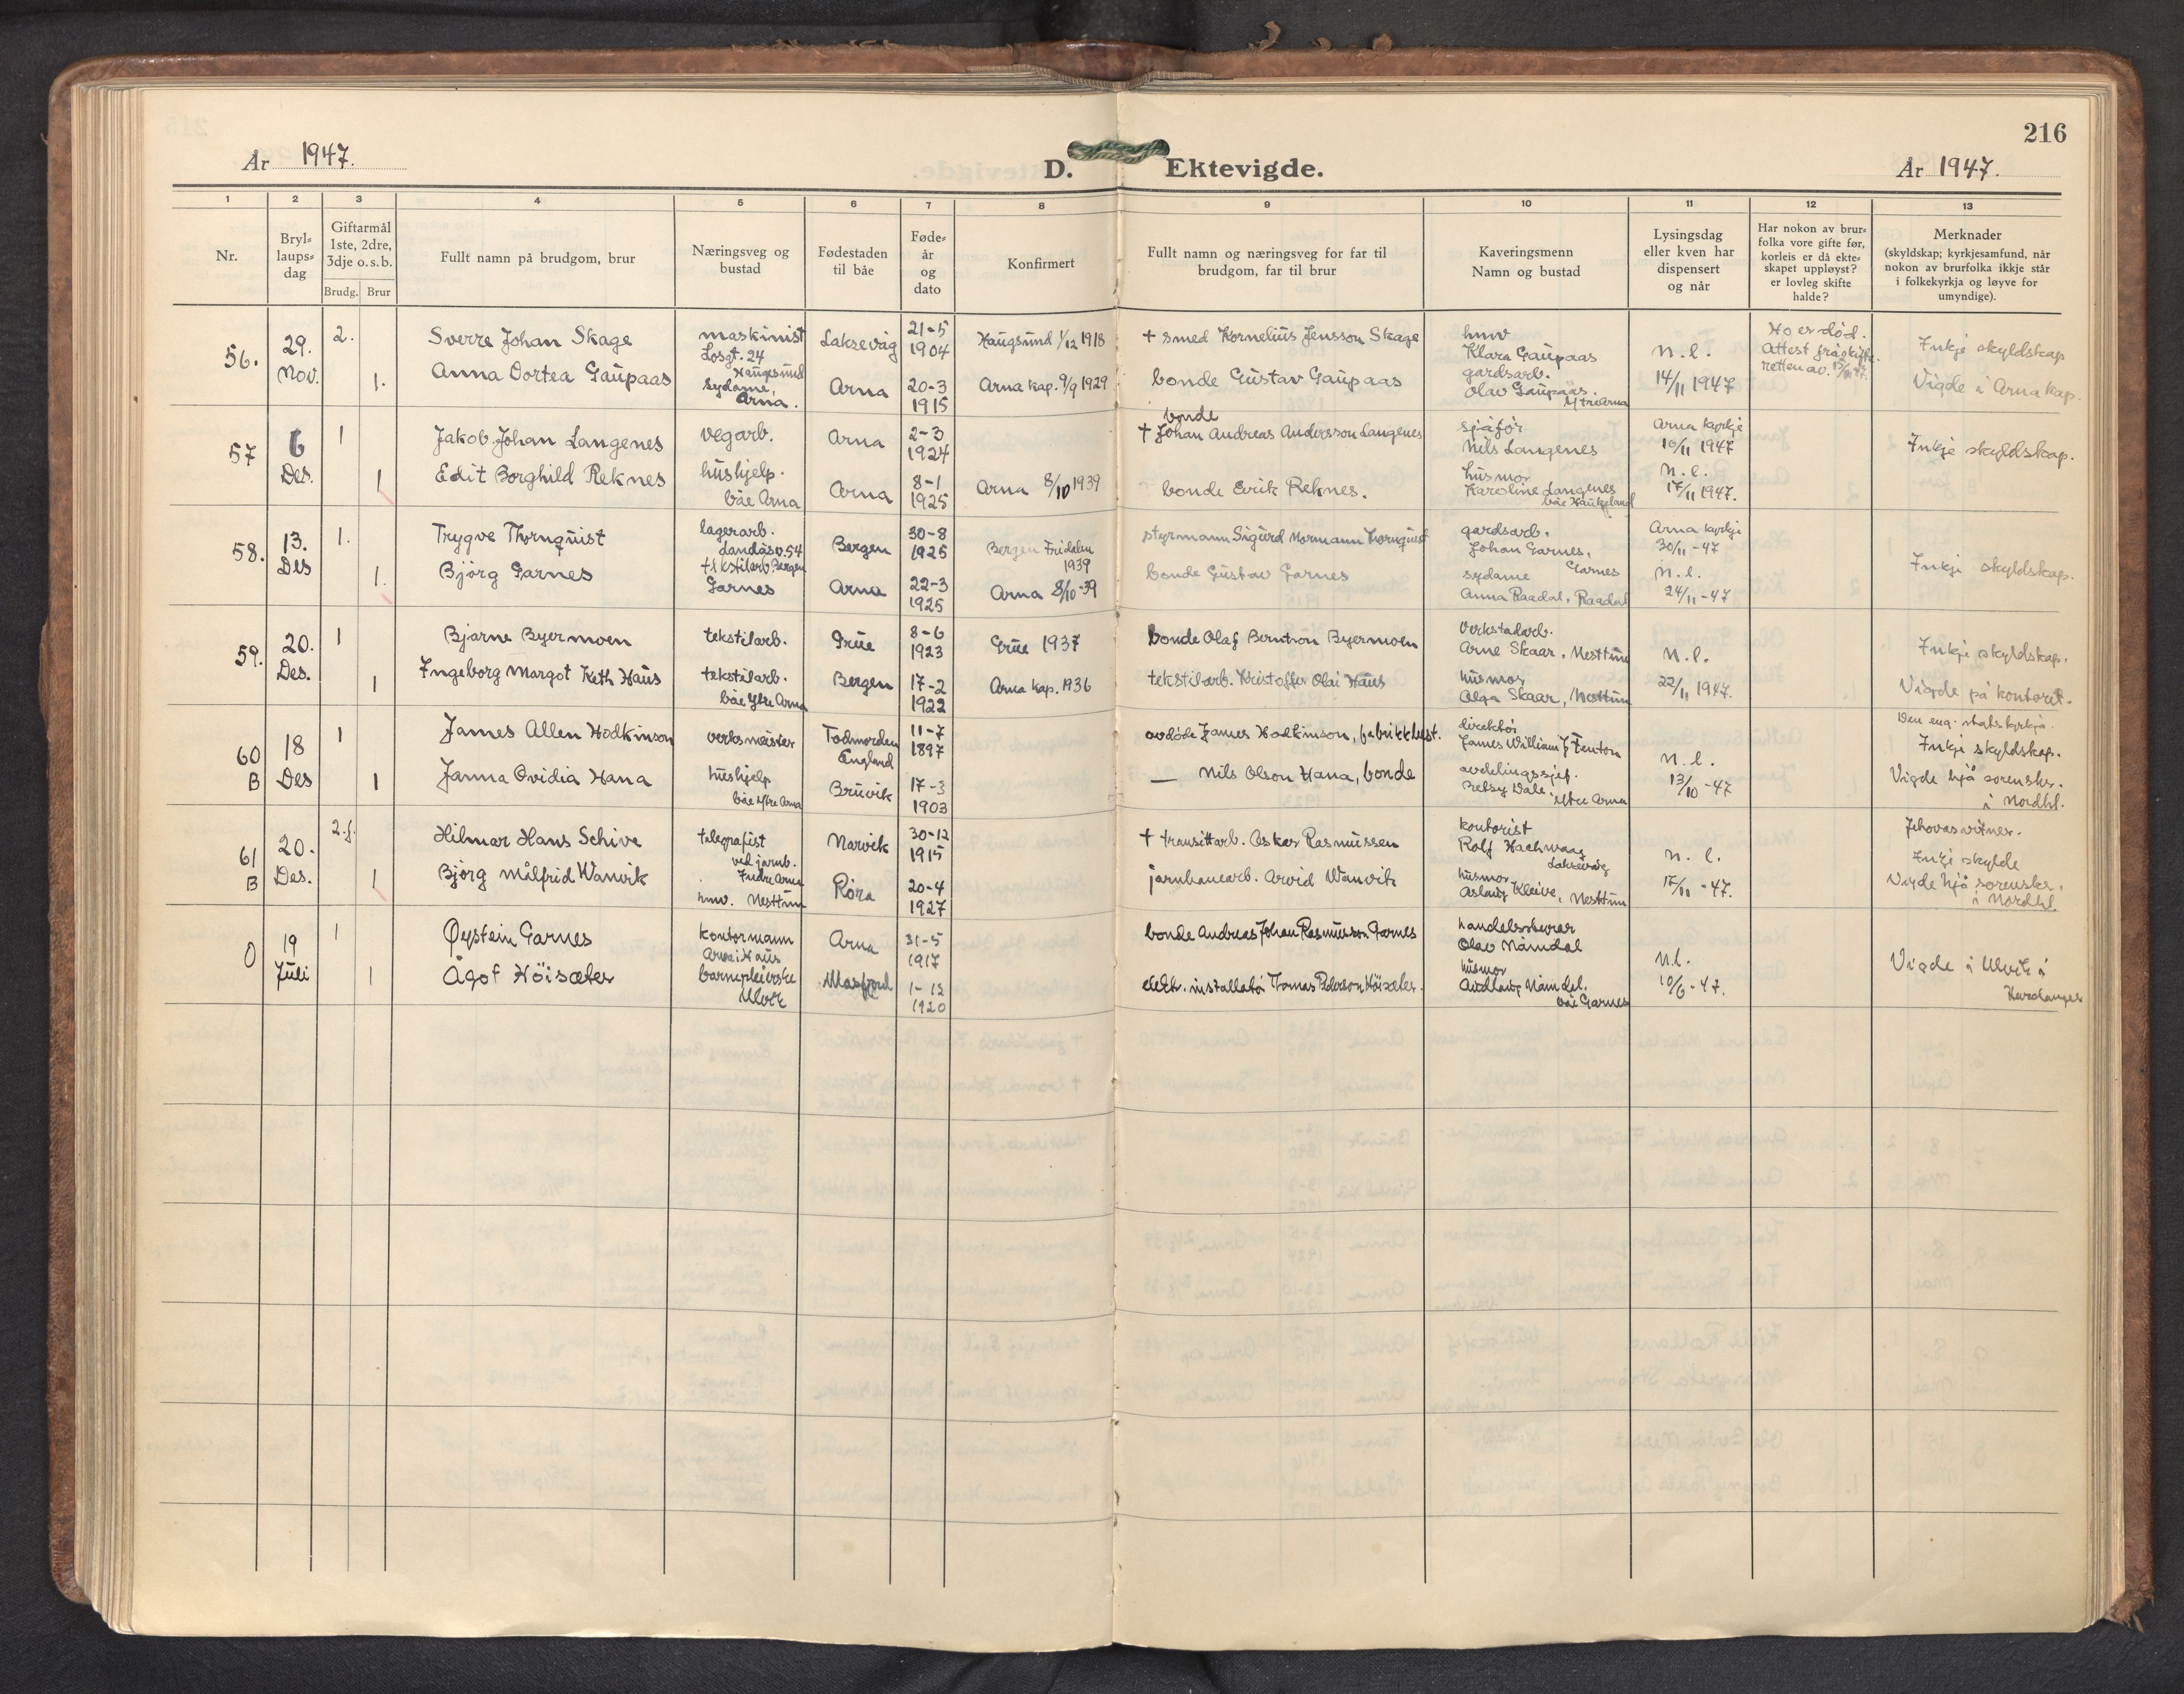 216
År 1947.
D. Ektevigde.
År 1947.
1 2 3 4 5 6 7 8 9 10 11 12 13
Nr.
Bryl=
laups=
dag
Giftarmål
1ste, 2dre,
3dje o. s. b.
Brudg. Brur
Fullt namn på brudgom, brur
Næringsveg og
bustad
Fødestaden
til båe
Føde=
år
og
dato
Konfirmert
Fullt namn og næringsveg for far til
brudgom, far til brur
Kaveringsmenn
Namn og bustad
Lysingsdag
eller kven har
dispensert
og når
Har nokon av brur=
folka vore gifte før,
korleis er då ekte=
skapet uppløyst?
er lovleg skifte
halde?
Merknader
(skyldskap; kyrkjesamfund, når
nokon av brurfolka ikkje står
i folkekyrkja og løyve for
umyndige).
56.
29.
Nov.
2.
1.
Sverre Johan Skage
Anna Dortea Gaupaas
maskinist
Losgt. 24
Haugesund
sydame,
Arna.
Laksevåg
Arna
21-5
1904
20-3
1915
Haugsund 1/12 1918
Arna kap. 9/9 1929
+ smed Kornelius Jensson Skage
bonde Gustav Gaupaas
hmv
Klara Gaupaas
gardsarb.
Olav Gaupaas.
Ytre Arna
n.l.
14/11 1947
Ho er död.
Attest frå skifte-
retten av.
Inkje skyldskap
Vigde i Arna kap.
57
6
Des.
1
1
Jakob Johan Langenes
Edit Borghild Reknes
vegarb.
hushjelp.
båe Arna
Arna
Arna
2-3
1924
8-1
1925
Arna 8/10 1939
bonde
+ Johan Andreas Andersson Langenes
bonde Erik Reknes.
sjåfør
Nils Langenes
husmor
Karoline Langenes
båe Haukeland
Arna kyrkje
16/11 1947
n.l.
17/11 1947.
Inkje skyldskap.
58.
13.
Des
1.
1.
Trygve Thornquist
Bjørg Garnes
lagerarb.
Landåsv. 54
tekstilarb. Bergen
Garnes
Bergen
Arna
30-8
1925
22-3
1925
Bergen Fridalen
1939
Arna 8/10-39
styrmann Sigurd Normann Thornquist
bonde Gustav Garnes
gardsarb.
Johan Garnes,
Garnes
sydame
Anna Raadal, Raadal
Arna kyrkje
30/11-47
n.l.
24/11-47
Inkje skyldskap.
59.
20.
Des.
1
1
Bjarne Byermoen
Ingeborg Margot Keth Haus
tekstilarb.
tekstilarb.
båe Ytre Arna
Grue
Bergen
8-6
1923
17-2
1922
Grue 1937
Arna kap. 1936
bonde Olaf Berntson Byermoen
tekstilarb. Kristoffer Olai Haus
verkstadarb.
Arne Skaar, Nesttun
husmor
Olga Skaar, Nesttun
n.l.
22/11 1947.
Inkje skyldskap.
Vigde på kontoret.
60
B
18
Des
1
1
James Allen Hodkinson
Janna Ovidia Hana
verksmeister
hushjelp
båe Ytre Arna
Todmorden
England
Bruvik
11-7
1897
17-3
1903
avdøde James Hodkinson, fabrikkbest.
— Nils Olson Hana, bonde
direktør
James William J Fenton
avdelingssjef.
Betsy Dale
Ytre Arna
n.l.
13/10-47
Den eng. statskyrkja.
Inkje skyldskap.
Vigde hjå sorenskr.
i Nordhl.
61
B
20.
Des.
2.f.
1
Hilmar Hans Schive
Bjørg Målfrid Wanvik
telegrafist
ved jarnb.
Indre Arna
hmv. Nesttun
Narvik
Röra
30-12
1915
20-4
1927
+ transittarb. Oskar Rasmussen
jarnbanearb. Arvid Wanvik
kontorist
Rolf
Laksevåg
husmor
Aslaug Kleive, Nesttun
n.l.
17/11-47.
Jehovas vitner.
Inkje skylde
Vigde hjå sorenskr.
i Nordhl.
0
19
Juli
1
1
Øystein Garnes
Ågot Höisæter
kontormann
Arna i Haus
barnepleierske
Ulvik
Arna
Masfjord
31-5
1917
1-12
1920
bonde Andreas Johan Rasmusson Garnes
elektr. installatør Tomas Pederson Höisæter.
Olav Namdal
husmor
Audlaug Namdal.
båe Garnes
n.l.
10/6-47.
Vigde i Ulvik i
Hardanger